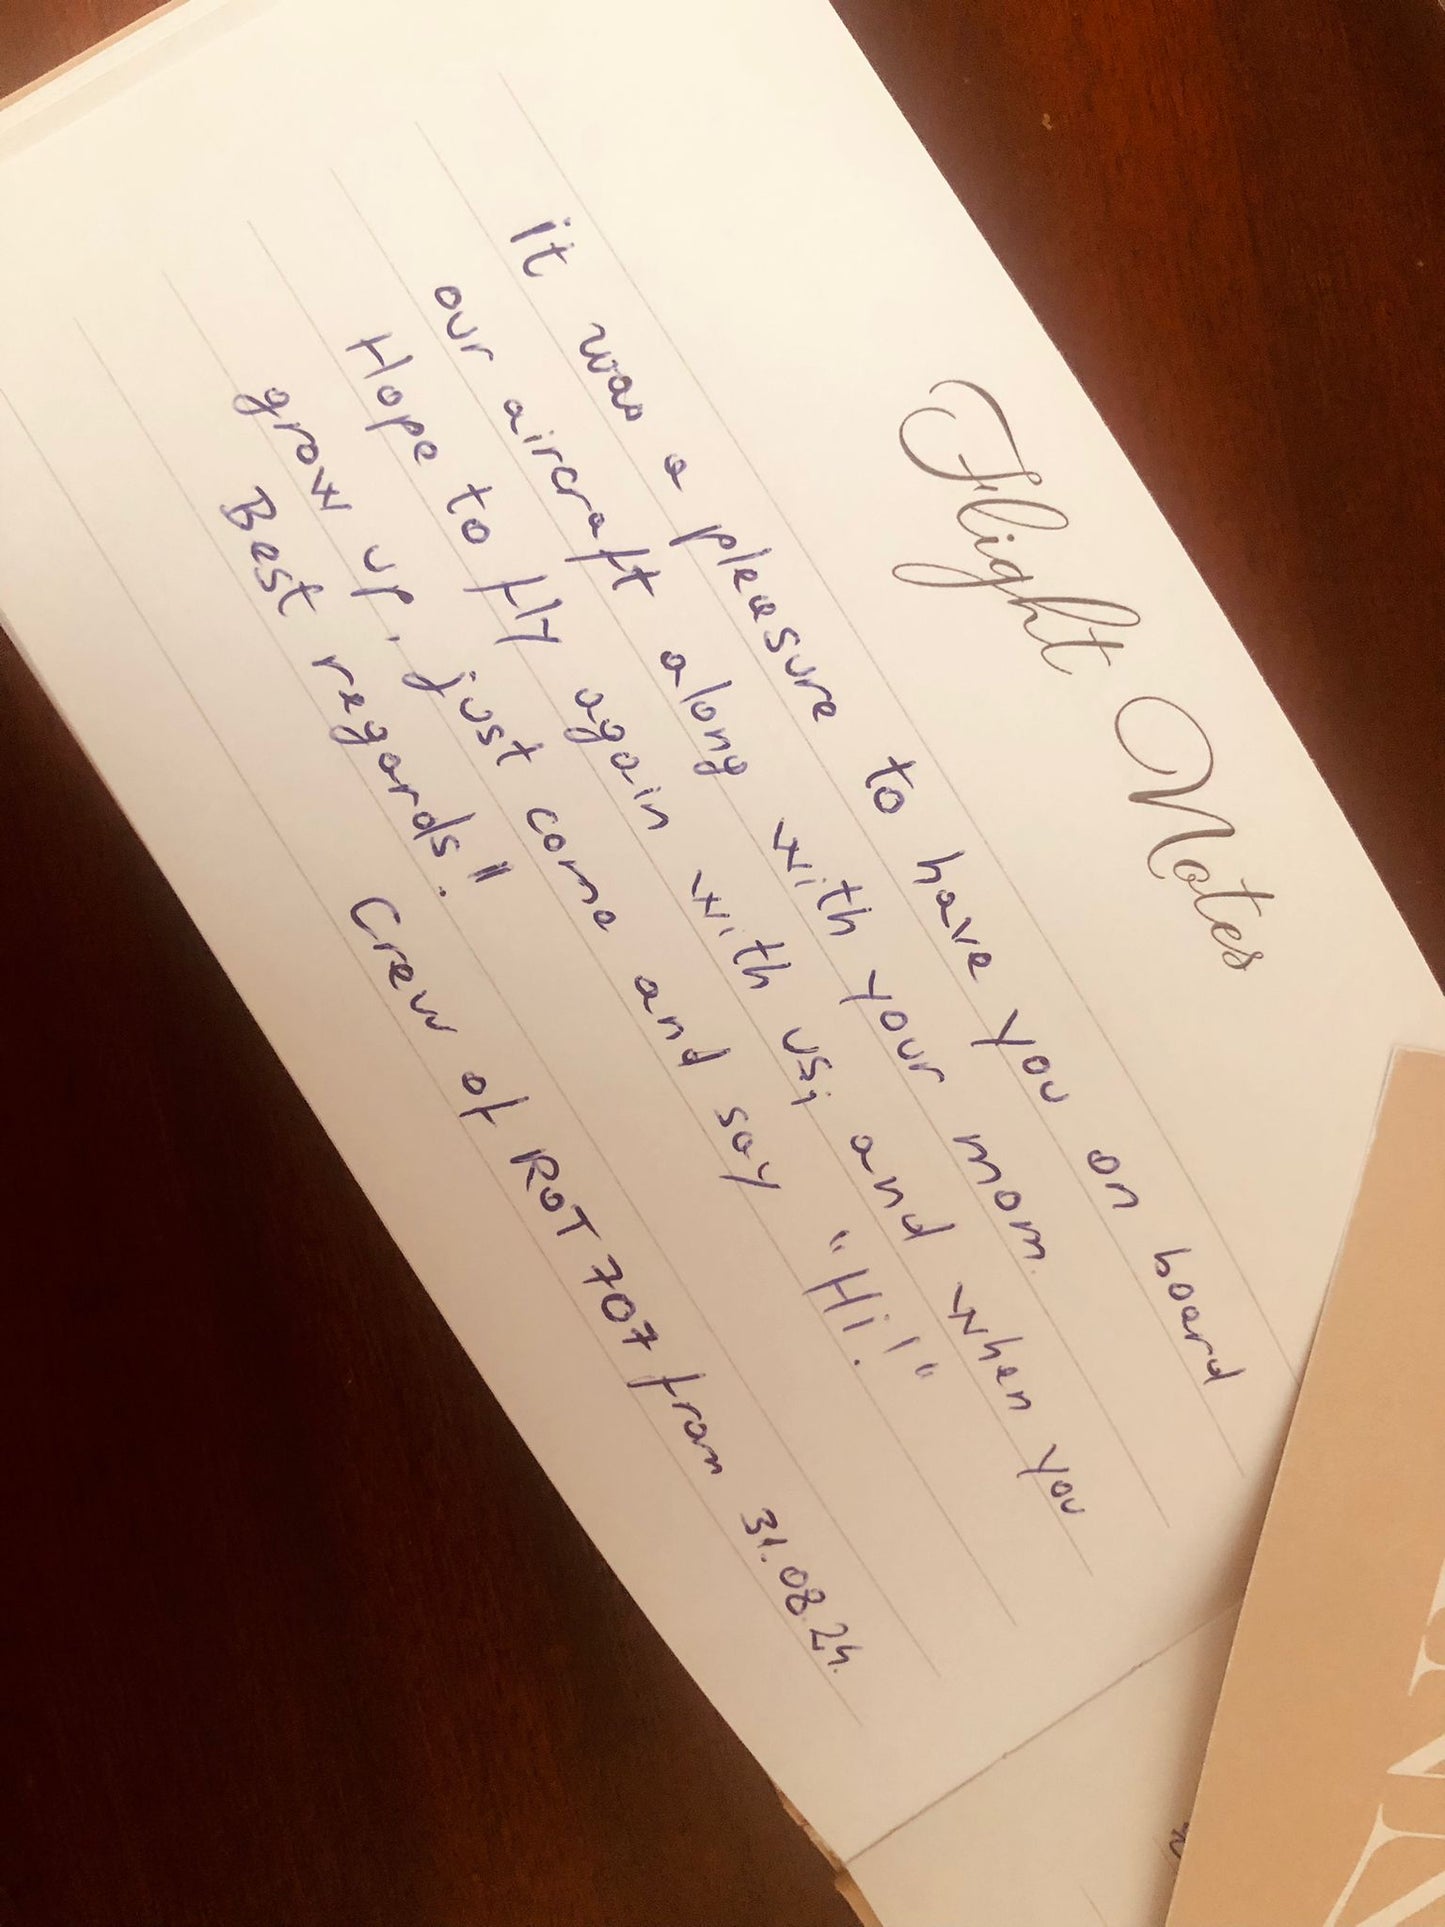 Flight Notes
it was a pleasure to have you on board
our aircraft along with your mom.
Hope to fly again with us; and when you
grow up, just come and say "Hi!"
Best regards!"
Crew of ROT 707 from 31.08.24.